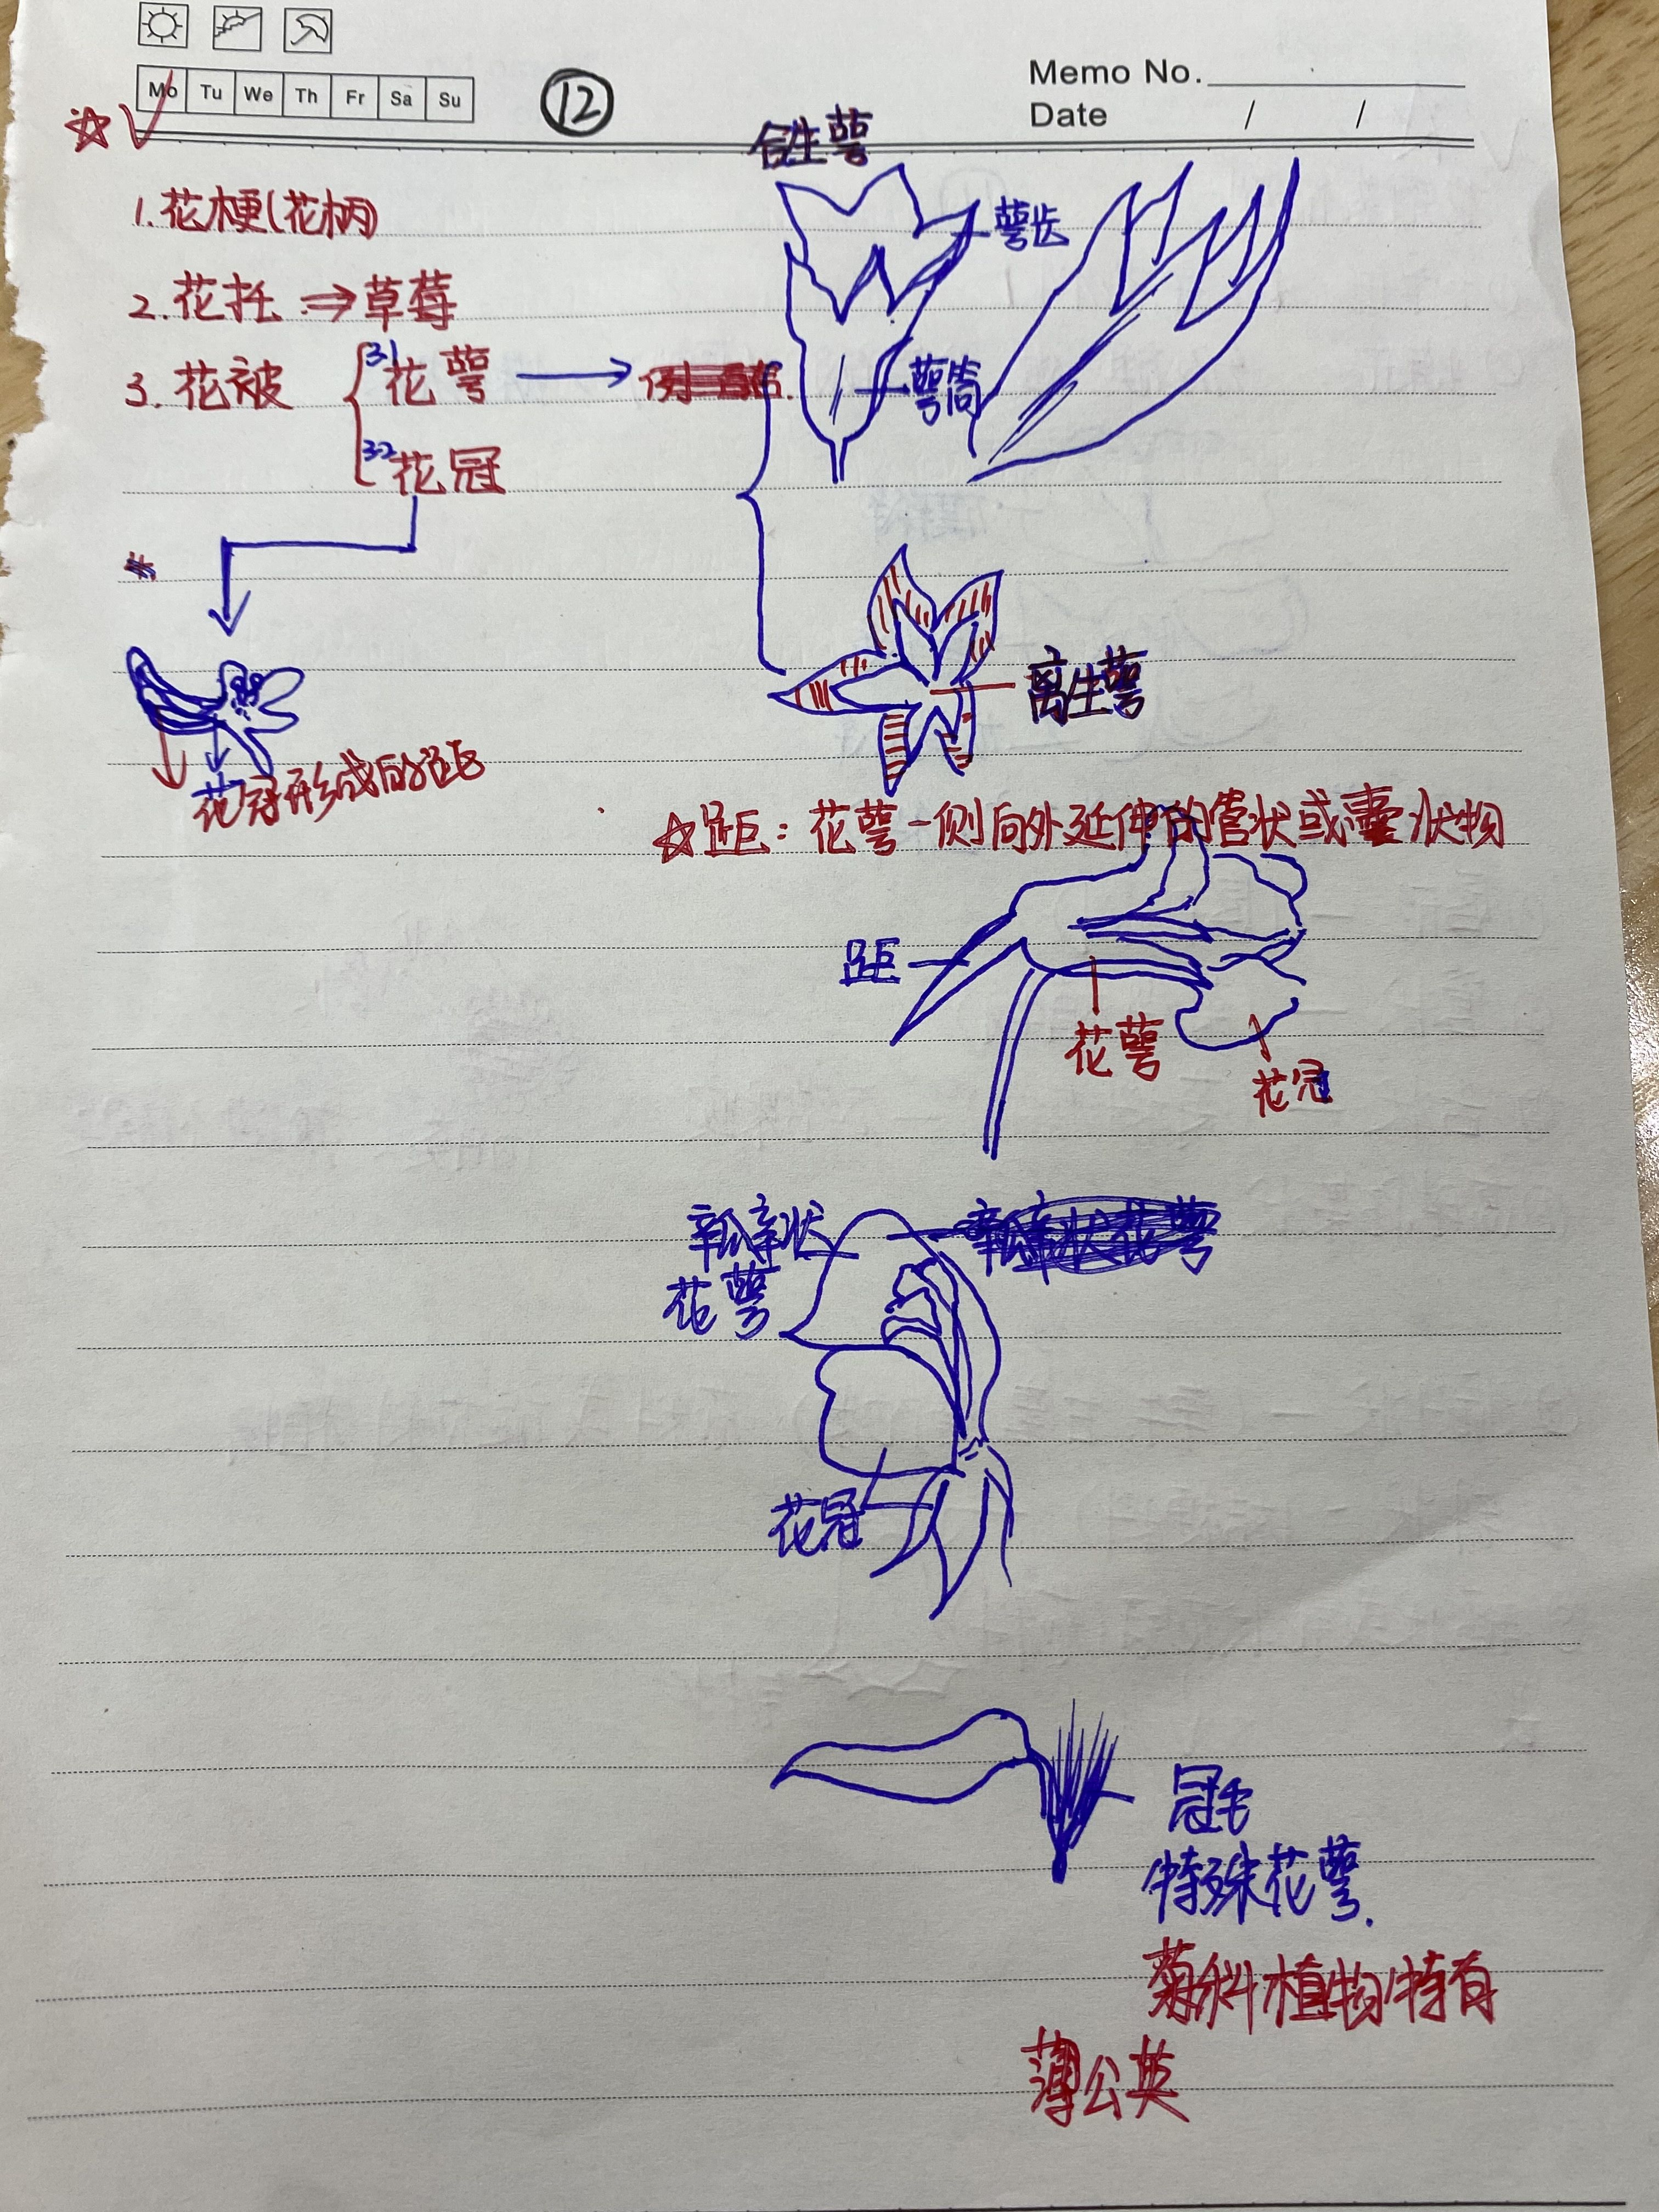 Mo Tu We Th Fr Sa Su
⑫
Memo No.
Date / /
☆✓
合生萼
1. 花梗(花柄)
萼齿
2. 花托 ⇒ 草莓
3. 花被
3-1 花萼
萼筒
3-2 花冠
离生萼
花冠形成的距
☆距：花萼一侧向外延伸的管状或囊状物
距
花萼
花冠
瓣状
花萼
花冠
冠毛
特殊花萼.
菊科植物特有
薄公英